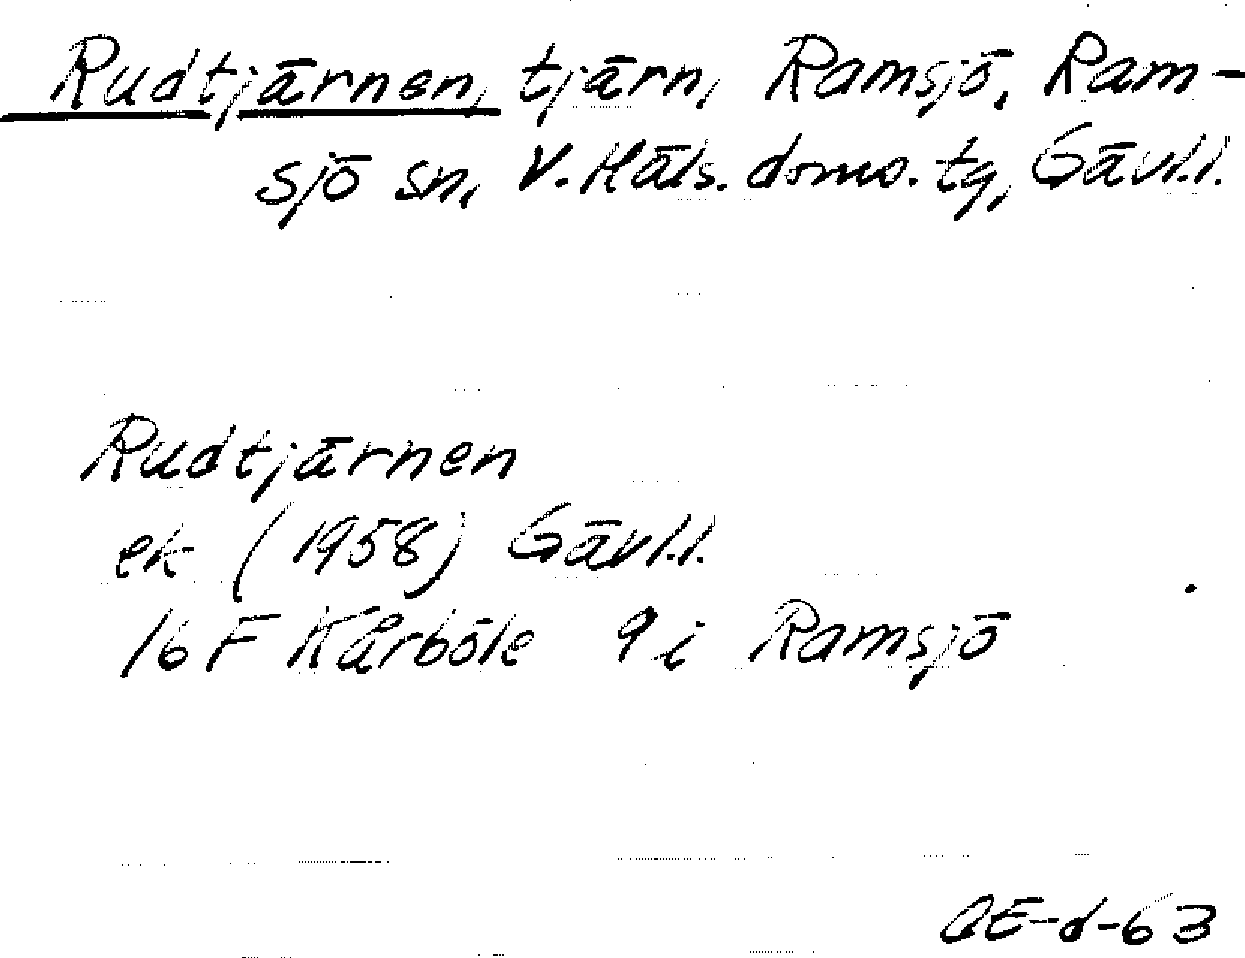 Rudtjärnen, tjärn, Ramsjö, Ram-
sjö sn, V. Häls. doms. tg, Gävl.l.
Rudtjärnen
ek (1958) Gävl.l.
16 F Kårböle 9 i Ramsjö
OE-d-63